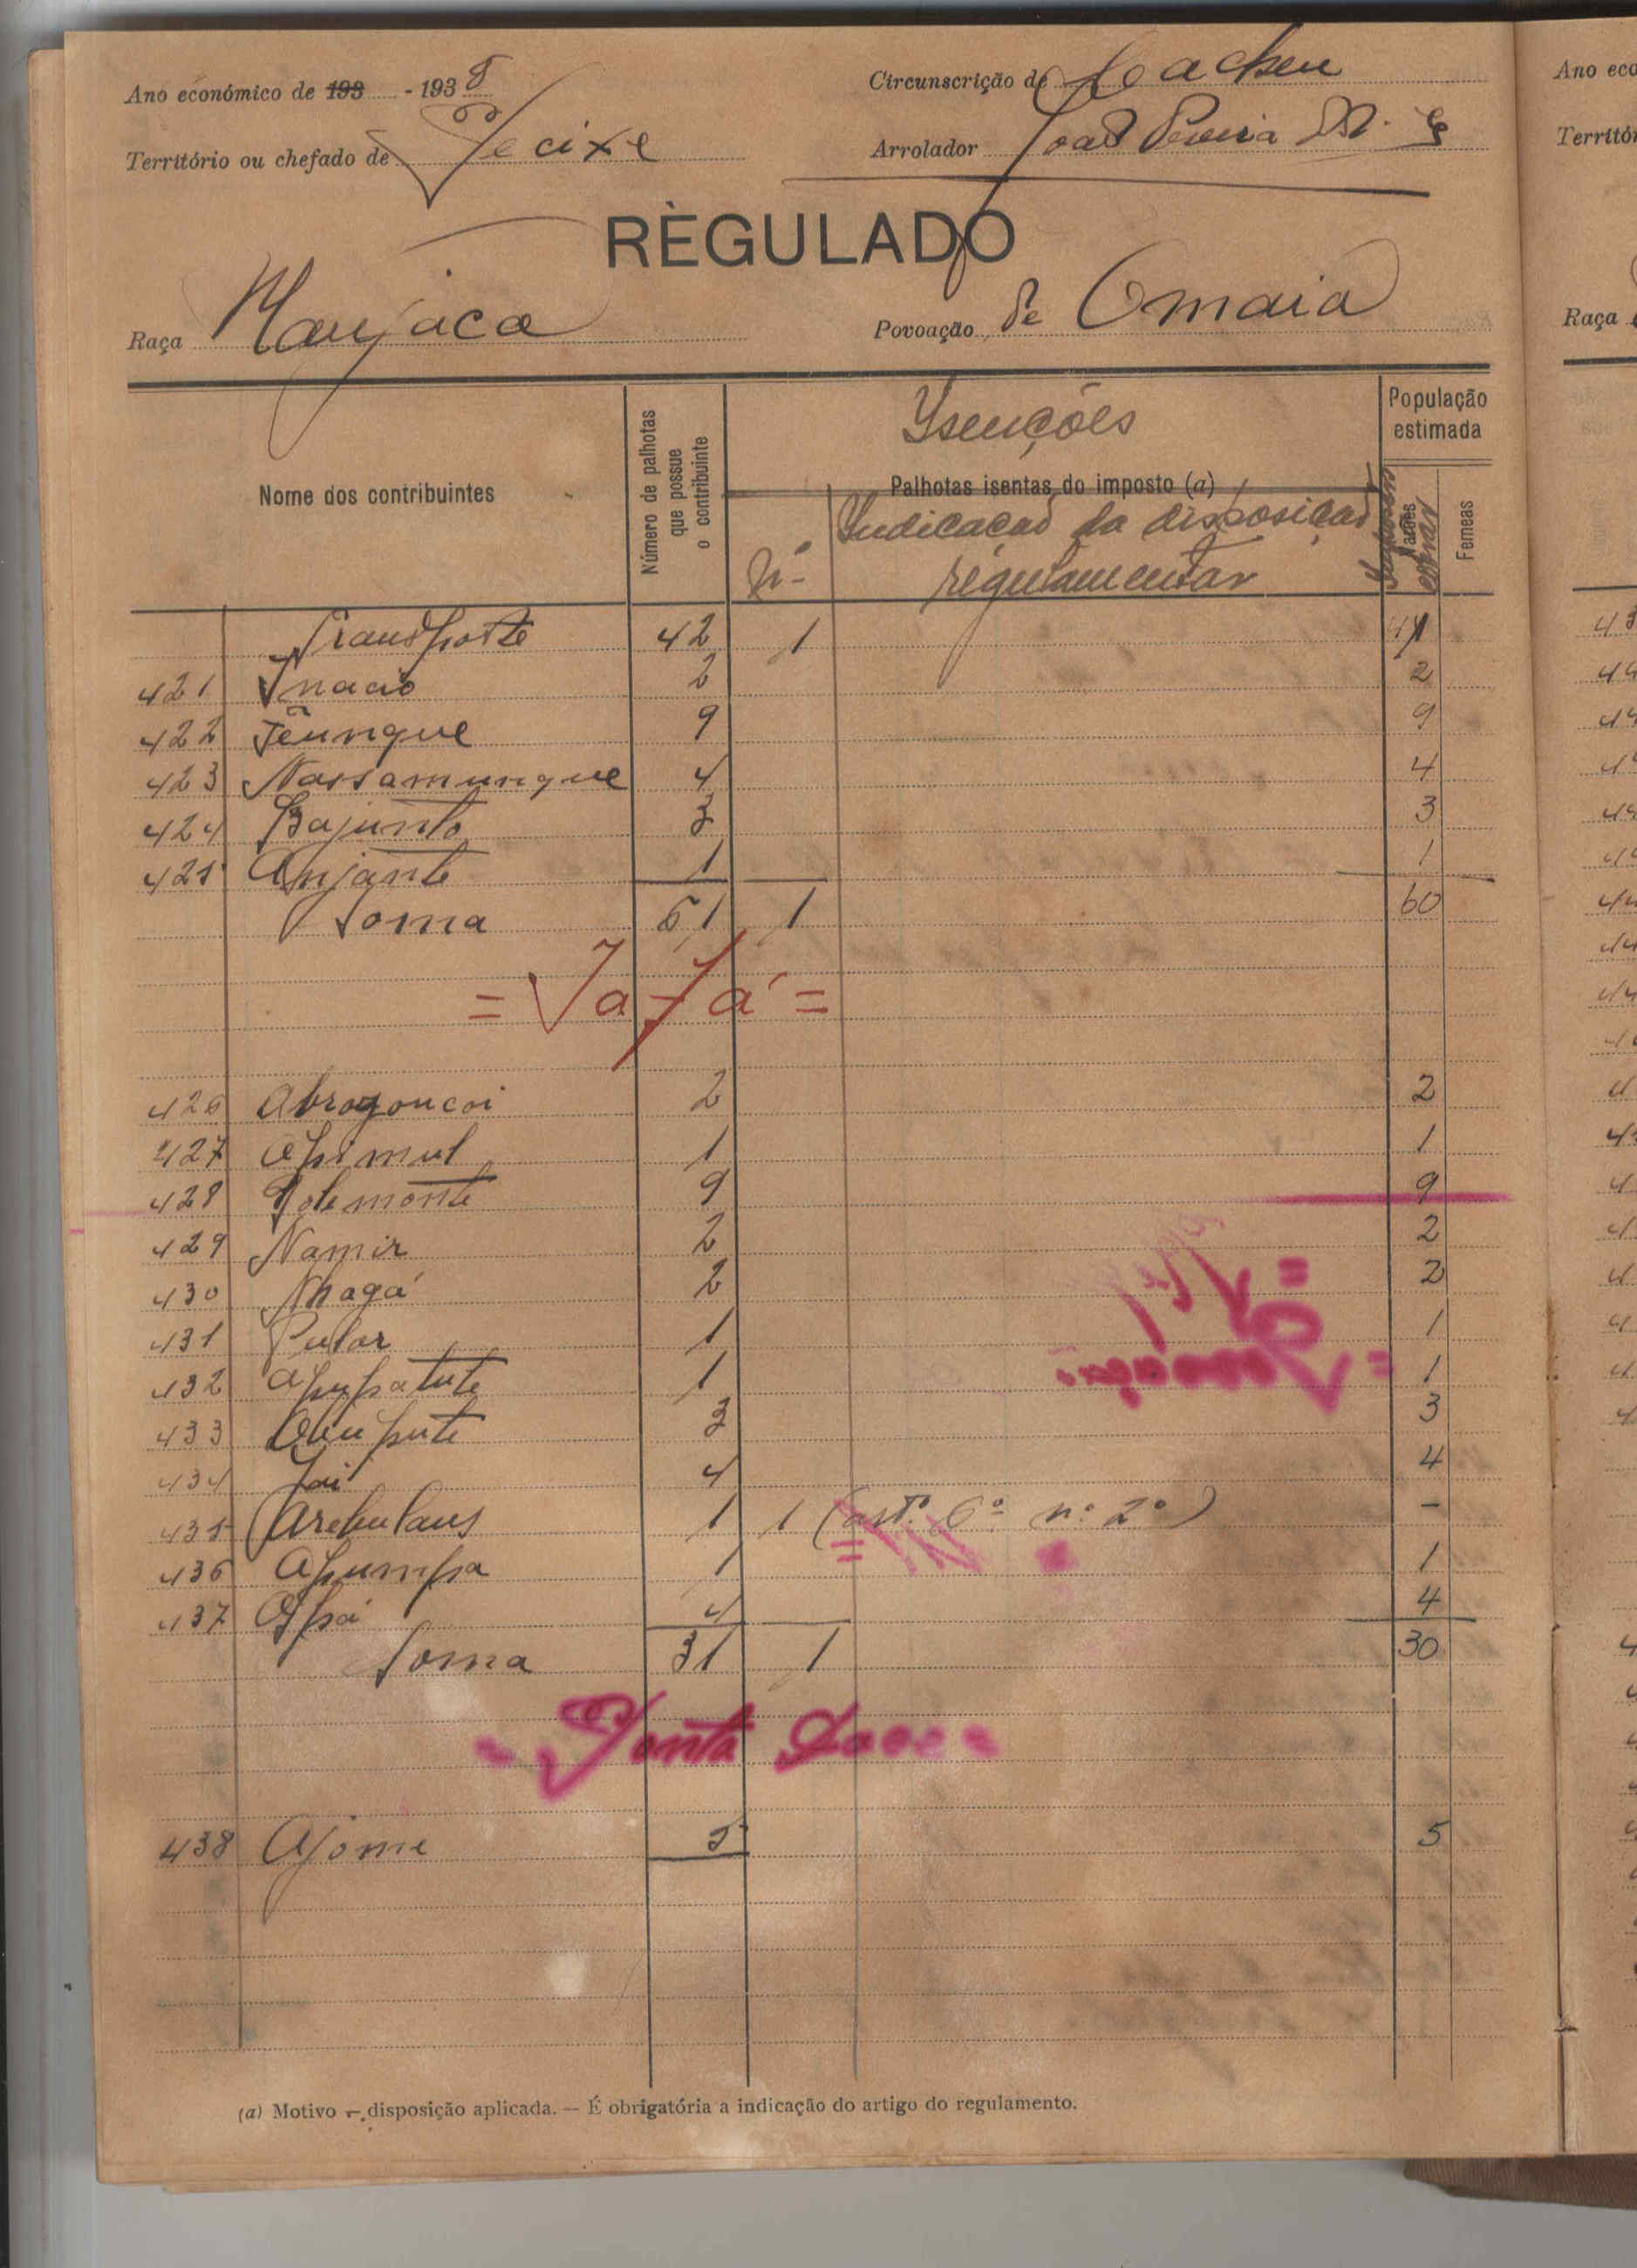 Ano económico de 193 - 1938
Circunscrição de Cacheu
Território ou chefado de Tecixe
Arrolador João Pereira
RÈGULADO
Raça Manjaca
Povoação de Omaia
Nome dos contribuintes
Número de palhotas que possue o contribuinte
Isenções
Palhotas isentas do imposto (a)
Nº
Indicação da disposição regulamentar
População estimada
Femeas
Transporte 42 1 41
421 Inacio 2 2
422 Jeunque 9 9
423 Nassamunque 4 4
424 Bajunto 3 3
425 Anjante 1 1
Soma 61 1 60
426 2 2
427 Apimul 1 1
428 9 9
429 Namir 2 2
430 Nhagá 2 2
431 Pular 1 1
432 Apupatute 1 1
433 3 3
434 Jai 4 4
435 1 1 (artº 6º nº 2º) -
436 Apumpa 1 1
437 Apá 4 4
Soma 31 1 30
438 Ajome 5 5
(a) Motivo — disposição aplicada. — É obrigatória a indicação do artigo do regulamento.